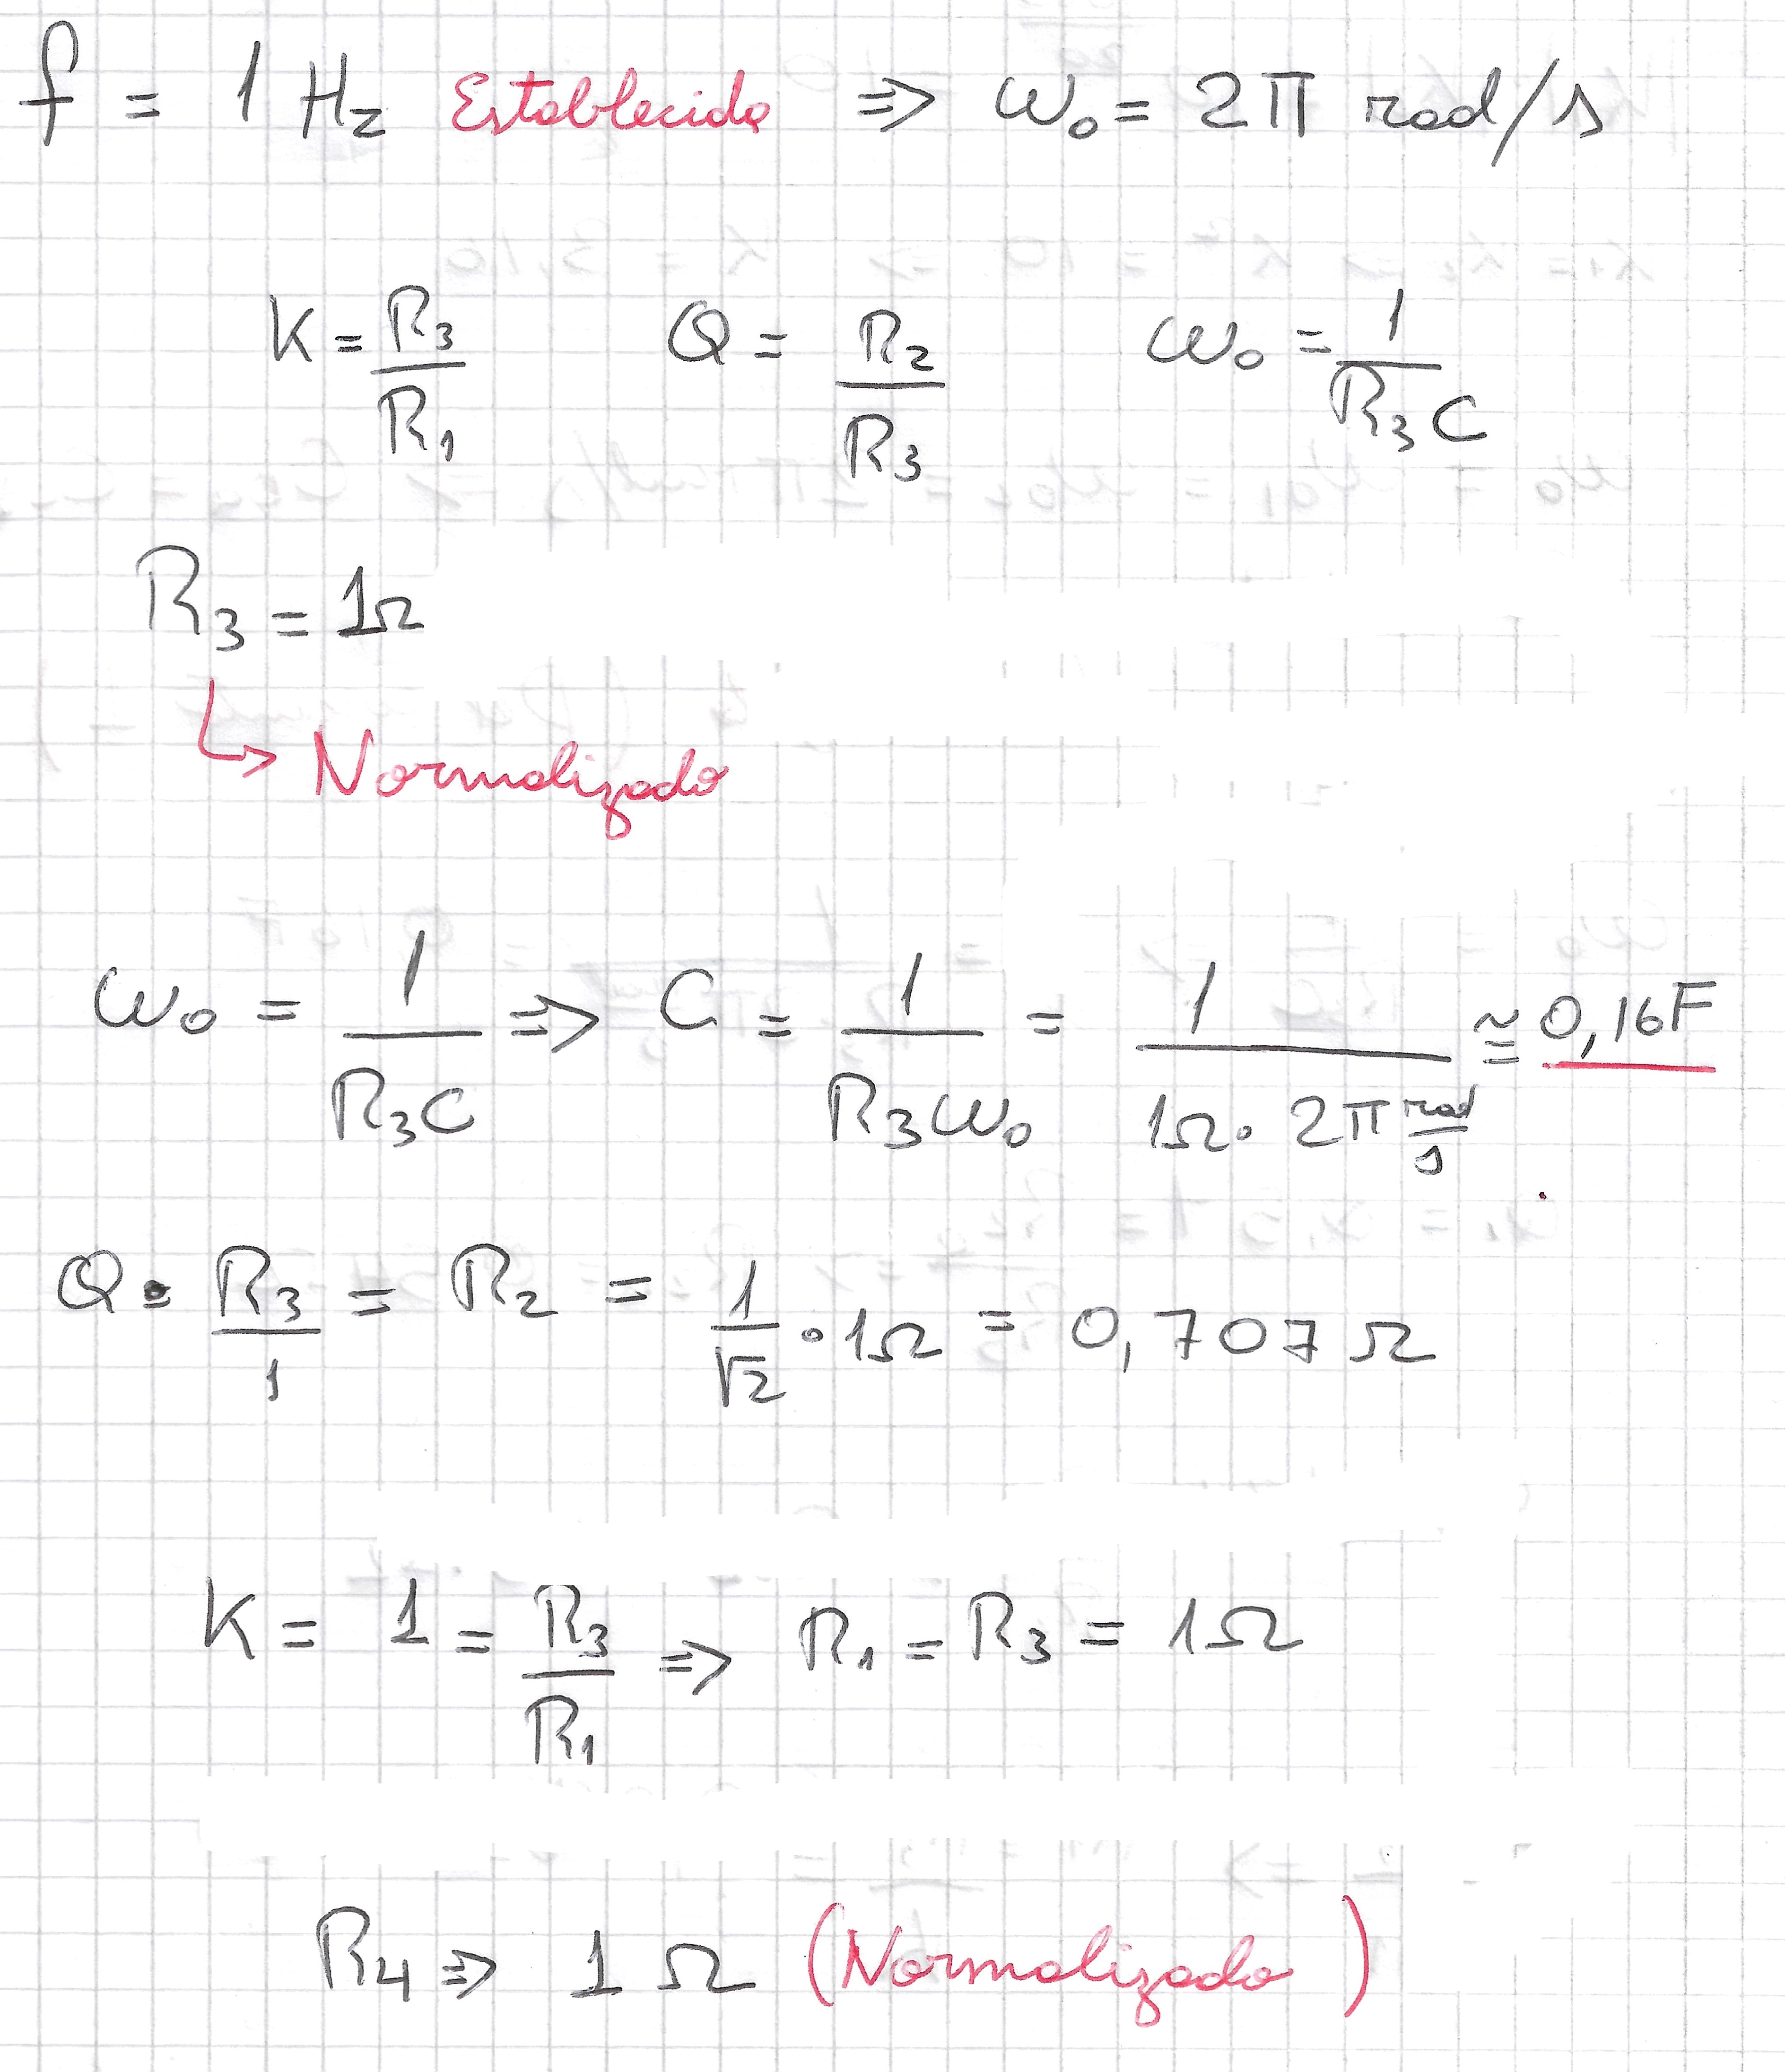 f = 1 Hz Establecido ⇒ ω₀ = 2π rad/s
K = R₃/R₁   Q = R₂/R₃   ω₀ = 1/(R₃C)
R₃ = 1Ω
↳ Normalizado
ω₀ = 1/(R₃C) ⇒ C = 1/(R₃ω₀) = 1/(1Ω · 2π rad/s) ≅ 0,16F
Q · R₃/1 = R₂ = 1/√2 · 1Ω = 0,707 Ω
K = 1 = R₃/R₁ ⇒ R₁ = R₃ = 1Ω
R₄ ⇒ 1 Ω (Normalizado)